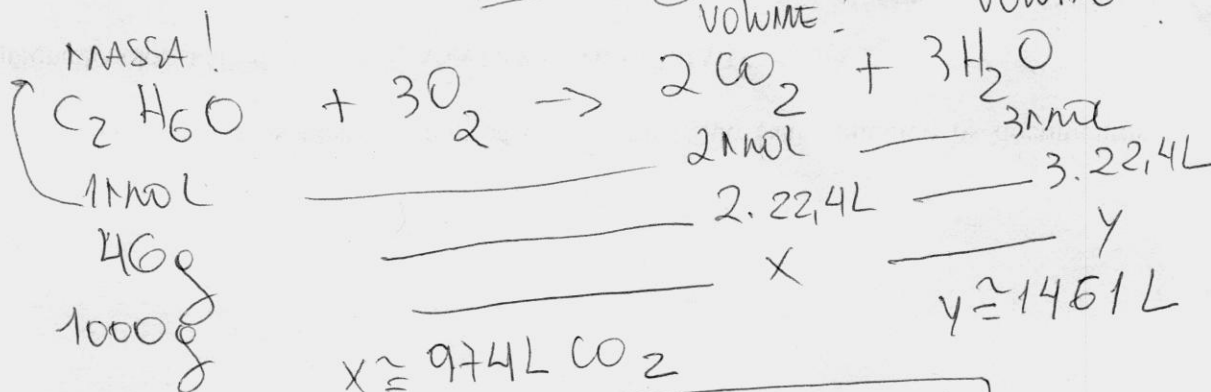 VOLUME.
VOLUME.
MASSA!
C2H6O + 3O2 -> 2CO2 + 3H2O
1MOL 2MOL 3MOL
46g 2.22,4L 3.22,4L
1000g X Y
X ≅ 974L CO2
Y ≅ 1461 L